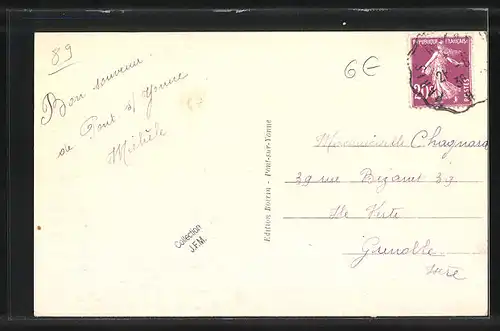 89
6€
Bon souvenir
de Pont s/ Yonne
Michèle
Collection
J.F.M.
Edition Boivin - Pont-sur-Yonne
REPUBLIQUE FRANÇAISE
20c
POSTES
Mademoiselle Chagnard
39 rue Bizanet 39
Ile Verte
Grenoble
Isère